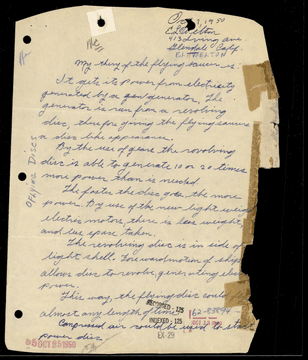 Oct. 7, 1950
413 Irving ave.
Glendale Calif.
My theory of the flying saucer is:
It gets its power from electricity
generated by a gen/generator. The
generator is run from a revolving
disc, therefor giving the flying saucer
a disc like appearance.
By the use of gears the revolving
disc is able to generate 10 or 20 times
more power than is needed.
The faster the disc goes the more
power. By use of the new light weight
electric motors, there is less weight,
and less space taken.
The revolving disc is in side of
light shell. Foreward motion of ship
allows disc to revolve, generating elec
power.
This way, the flying disc could fly
almost any length of time.
Compressed air could be used to start
power disc
Flying Discs
RECORDED - 125
INDEXED - 125
62-83894
EX-29
OCT 25 1950